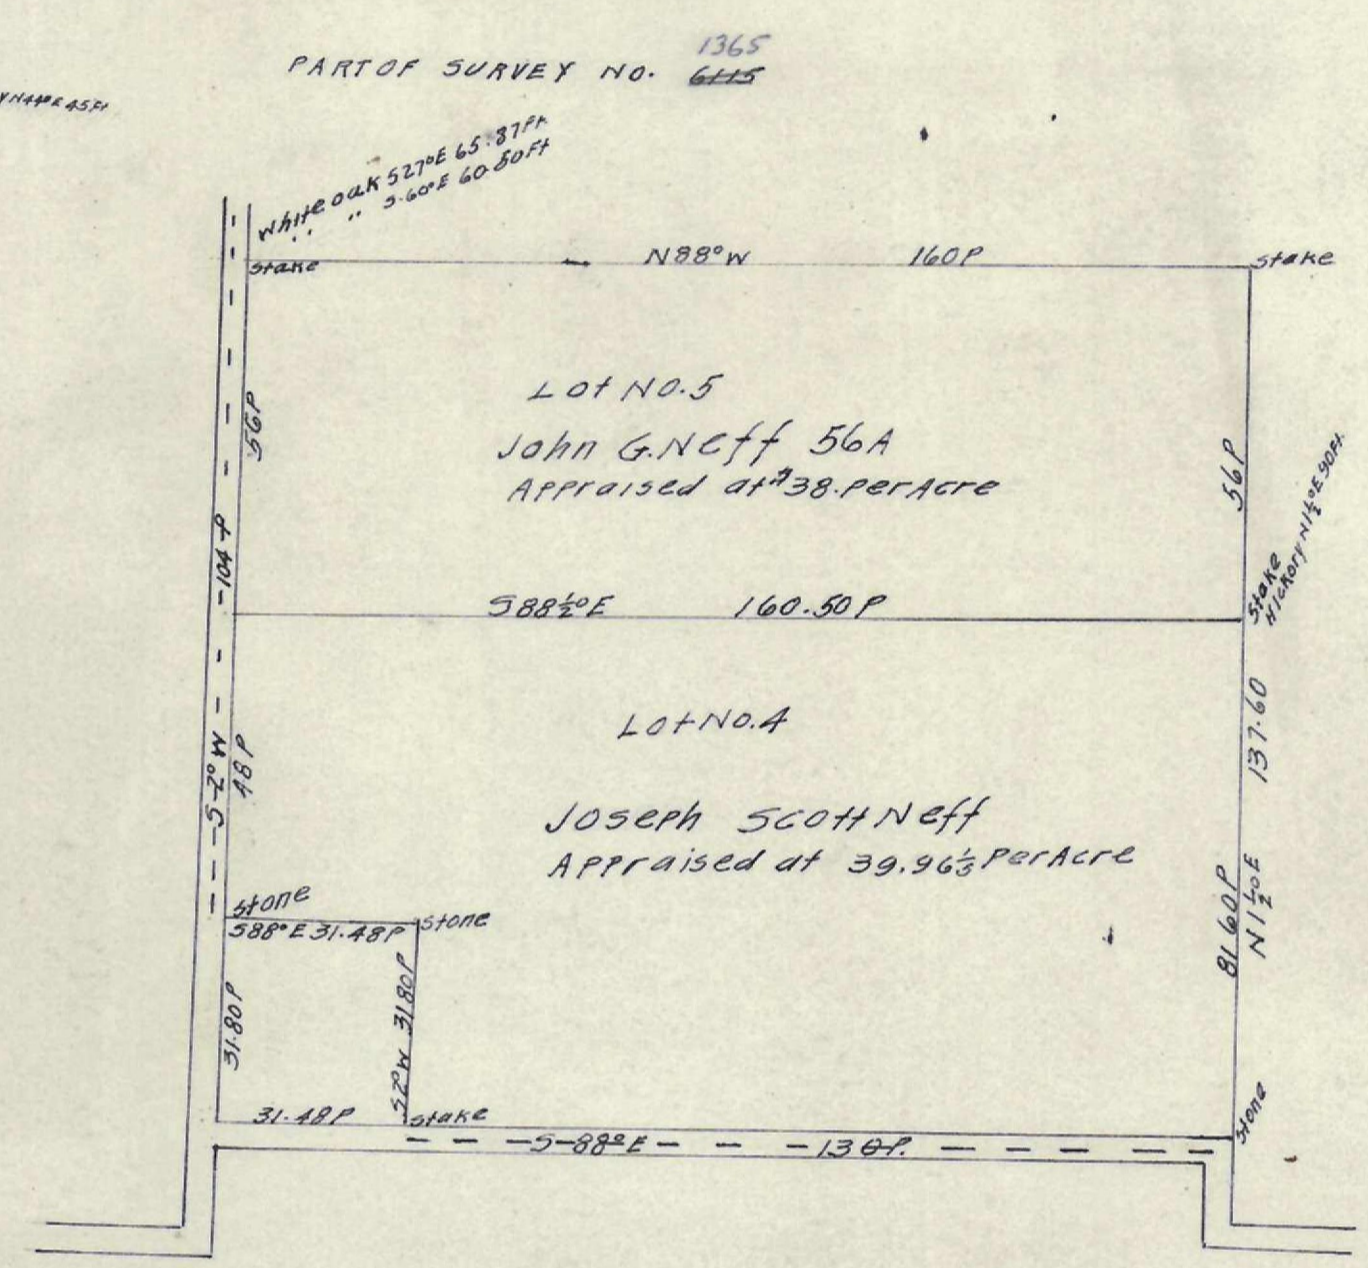 1365
PART OF SURVEY NO. 6115
N44°E 45Ft
White oak S27°E 65.87Ft
" " S.60°E 60.50Ft
Stake
N88°W 160P
Stake
56P
Lot No.5
John G.Neff 56A
Appraised at $38.per Acre
56P
Stake
Hickory N1½°E 90Ft.
104 P
S88½°E 160.50P
Lot No.4
S-2°W
48P
137.60
Joseph Scott Neff
Appraised at 39.96⅓ Per Acre
81.60P
N1½°E
Stone
S88°E 31.48P
Stone
31.80P
S2°W 31.80P
31.48P
Stake
S-88°E 130P.
Stone